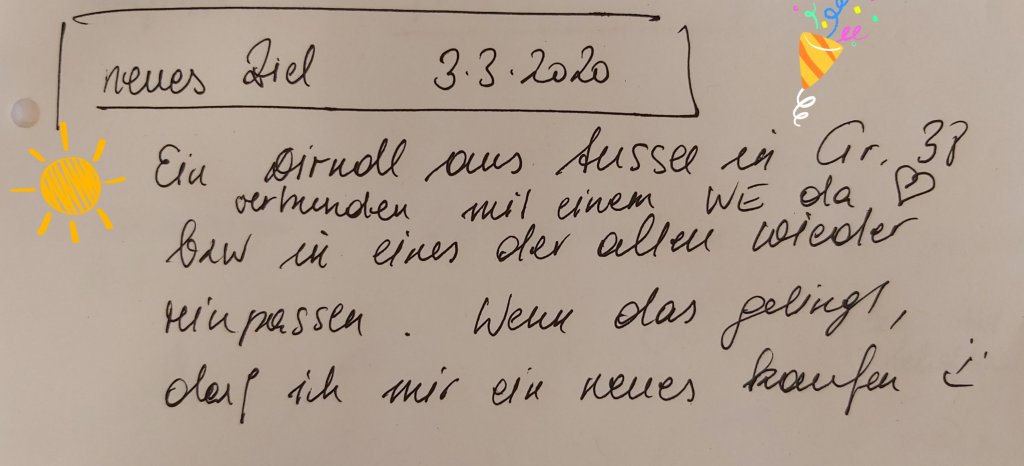 neues Ziel 3.3.2020
Ein Dirndl aus Aussee in Gr. 38
verbunden mit einem WE da ♡
bzw in eines der alten wieder
reinpassen. Wenn das gelingt,
darf ich mir ein neues kaufen :)